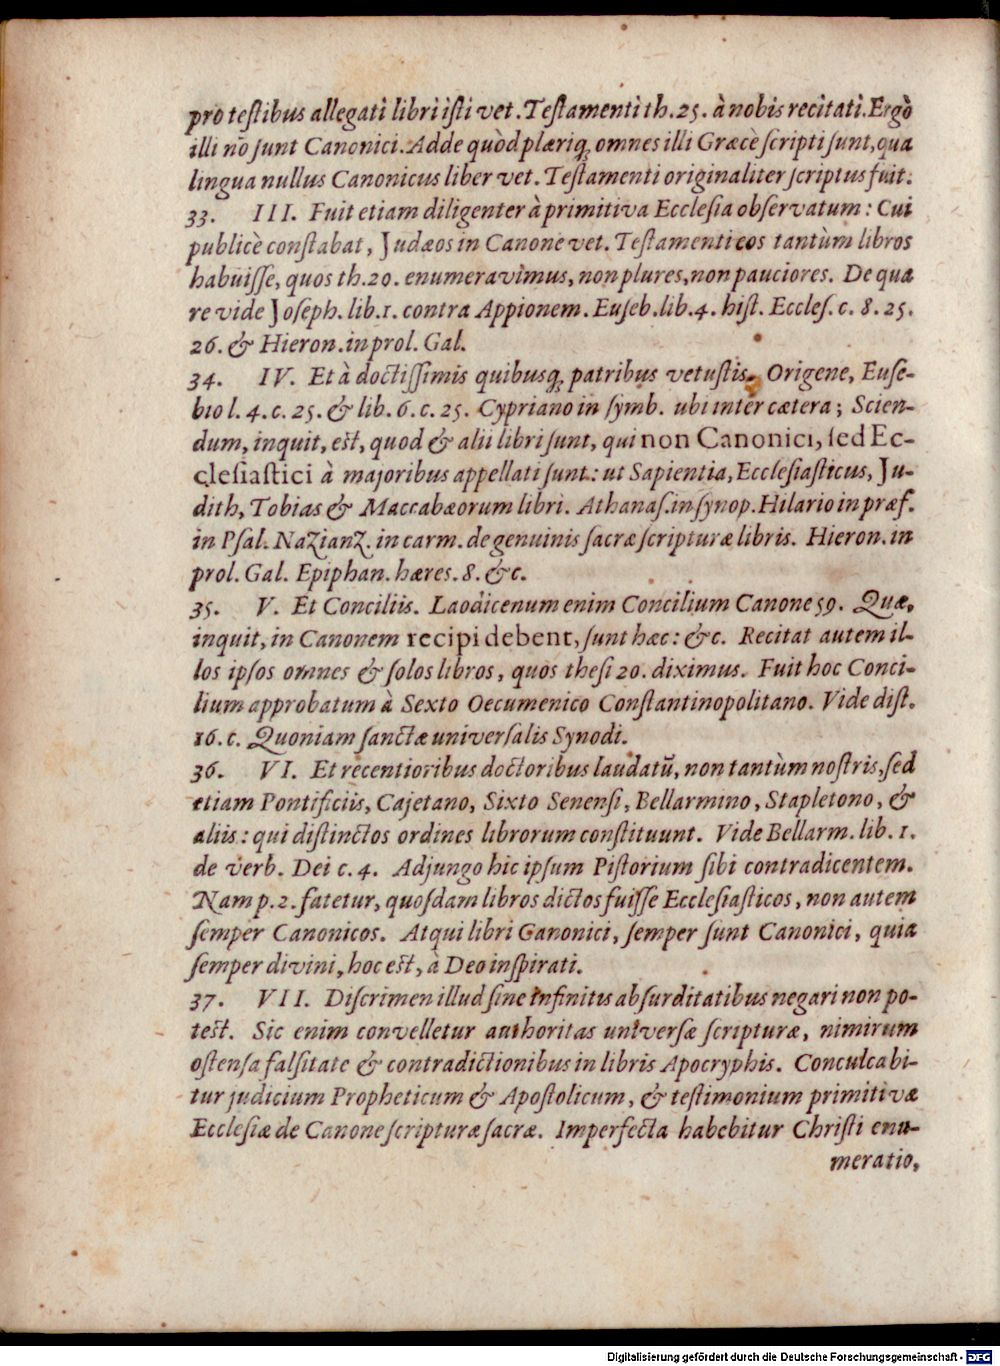 pro testibus allegati libri isti vet. Testamenti th. 25. à nobis recitati. Ergò
illi nō sunt Canonici. Adde quòd plæriq; omnes illi Græcè scripti sunt, qua
lingua nullus Canonicus liber vet. Testamenti originaliter scriptus fuit.
33. III. Fuit etiam diligenter à primitiva Ecclesia observatum: Cui
publicè constabat, Judæos in Canone vet. Testamenti eos tantùm libros
habuisse, quos th. 20. enumeravimus, non plures, non pauciores. De qua
re vide Joseph. lib. 1. contra Appionem. Euseb. lib. 4. hist. Eccles. c. 8. 25.
26. & Hieron. in prol. Gal.
34. IV. Et à doctissimis quibusq; patribus vetustis. Origene, Euse-
bio l. 4. c. 25. & lib. 6. c. 25. Cypriano in symb. ubi inter cætera; Scien-
dum, inquit, est, quod & alii libri sunt, qui non Canonici, sed Ec-
clesiastici à majoribus appellati sunt: ut Sapientia, Ecclesiasticus, Ju-
dith, Tobias & Maccabæorum libri. Athanas. in synop. Hilario in præf.
in Psal. Nazianz. in carm. de genuinis sacræ scripturæ libris. Hieron. in
prol. Gal. Epiphan. hæres. 8. &c.
35. V. Et Conciliis. Laodicenum enim Concilium Canone 59. Quæ,
inquit, in Canonem recipi debent, sunt hæc: &c. Recitat autem il-
los ipsos omnes & solos libros, quos thesi 20. diximus. Fuit hoc Conci-
lium approbatum à Sexto Oecumenico Constantinopolitano. Vide dist.
16. c. Quoniam sanctæ universalis Synodi.
36. VI. Et recentioribus doctoribus laudatū, non tantùm nostris, sed
etiam Pontificiis, Cajetano, Sixto Senensi, Bellarmino, Stapletono, &
aliis: qui distinctos ordines librorum constituunt. Vide Bellarm. lib. 1.
de verb. Dei c. 4. Adjungo hic ipsum Pistorium sibi contradicentem.
Nam p. 2. fatetur, quosdam libros dictos fuisse Ecclesiasticos, non autem
semper Canonicos. Atqui libri Canonici, semper sunt Canonici, quia
semper divini, hoc est, à Deo inspirati.
37. VII. Discrimen illud sine infinitis absurditatibus negari non po-
test. Sic enim convelletur authoritas universæ scripturæ, nimirum
ostensa falsitate & contradictionibus in libris Apocryphis. Conculcabi-
tur judicium Propheticum & Apostolicum, & testimonium primitivæ
Ecclesiæ de Canone scripturæ sacræ. Imperfecta habebitur Christi enu-
meratio,
Digitalisierung gefördert durch die Deutsche Forschungsgemeinschaft - DFG